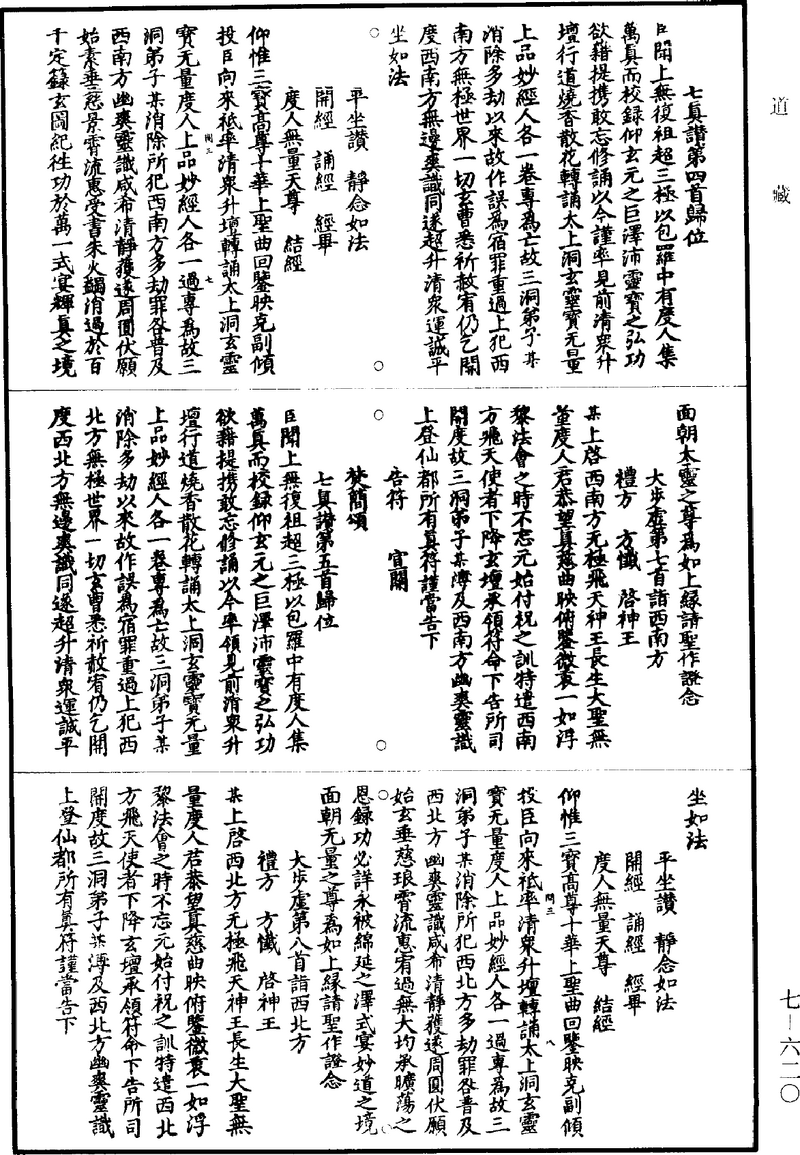 道藏
七真讃第四首歸位
臣聞上無復祖超三極以包羅中有度人集
萬真而校録仰玄元之巨澤沛靈寶之弘功
欲藉提携敢忘修誦以今謹率見前清衆升
壇行道燒香散花轉誦太上洞玄靈寶无量
上品妙經人各一卷專為亡故三洞弟子某
消除多劫以來故作誤為宿罪重過上犯西
南方無極世界一切玄曹悉祈赦宥仍乞開
度西南方無邊爽識同遂超升清衆運誠平
坐如法
平坐讃 靜念如法
開經 誦經 經畢
度人無量天尊 結經
仰惟三寶高尊十華上聖曲回鑒映克副傾
投臣向來祗率清衆升壇轉誦太上洞玄靈
寶无量度人上品妙經人各一過專為故三
洞弟子某消除所犯西南方多劫罪咎普及
西南方幽爽靈識咸希清靜獲遂周圓伏願
始素垂慈景霄流惠受書朱火蠲消過於百
千定籙玄圖紀徃功於萬一式宴輝真之境
面朝太靈之尊為如上緣請聖作證念
大步虛第七首詣西南方
禮方 方懺 啓神王
某上啓西南方无極飛天神王長生大聖無
量度人君恭望真慈曲映俯鑒微衷一如浮
黎法會之時不忘元始付祝之訓特遣西南
方飛天使者下降玄壇承領符命下告所司
開度故三洞弟子某溥及西南方幽爽靈識
上登仙都所有真符謹當告下
告符 宣關
焚簡頌
七真讃第五首歸位
臣聞上無復祖超三極以包羅中有度人集
萬真而校録仰玄元之巨澤沛靈寶之弘功
欲藉提携敢忘修誦以今率領見前清衆升
壇行道燒香散花轉誦太上洞玄靈寶无量
上品妙經人各一卷專為亡故三洞弟子某
消除多劫以來故作誤為宿罪重過上犯西
北方無極世界一切玄曹悉祈赦宥仍乞開
度西北方無邊爽識同遂超升清衆運誠平
坐如法
平坐讃 靜念如法
開經 誦經 經畢
度人無量天尊 結經
仰惟三寶高尊十華上聖曲回鑒映克副傾
投臣向來祗率清衆升壇轉誦太上洞玄靈
寶无量度人上品妙經人各一過專為故三
洞弟子某消除所犯西北方多劫罪咎普及
西北方幽爽靈識咸希清靜獲遂周圓伏願
始玄垂慈琅霄流惠宥過無大均承曠蕩之
恩録功必詳永被綿延之澤式宴妙道之境
面朝无量之尊為如上緣請聖作證念
大步虛第八首詣西北方
禮方 方懺 啓神王
某上啓西北方无極飛天神王長生大聖無
量度人君恭望真慈曲映俯鑒微衷一如浮
黎法會之時不忘元始付祝之訓特遣西北
方飛天使者下降玄壇承領符命下告所司
開度故三洞弟子某溥及西北方幽爽靈識
上登仙都所有真符謹當告下
七－六二〇